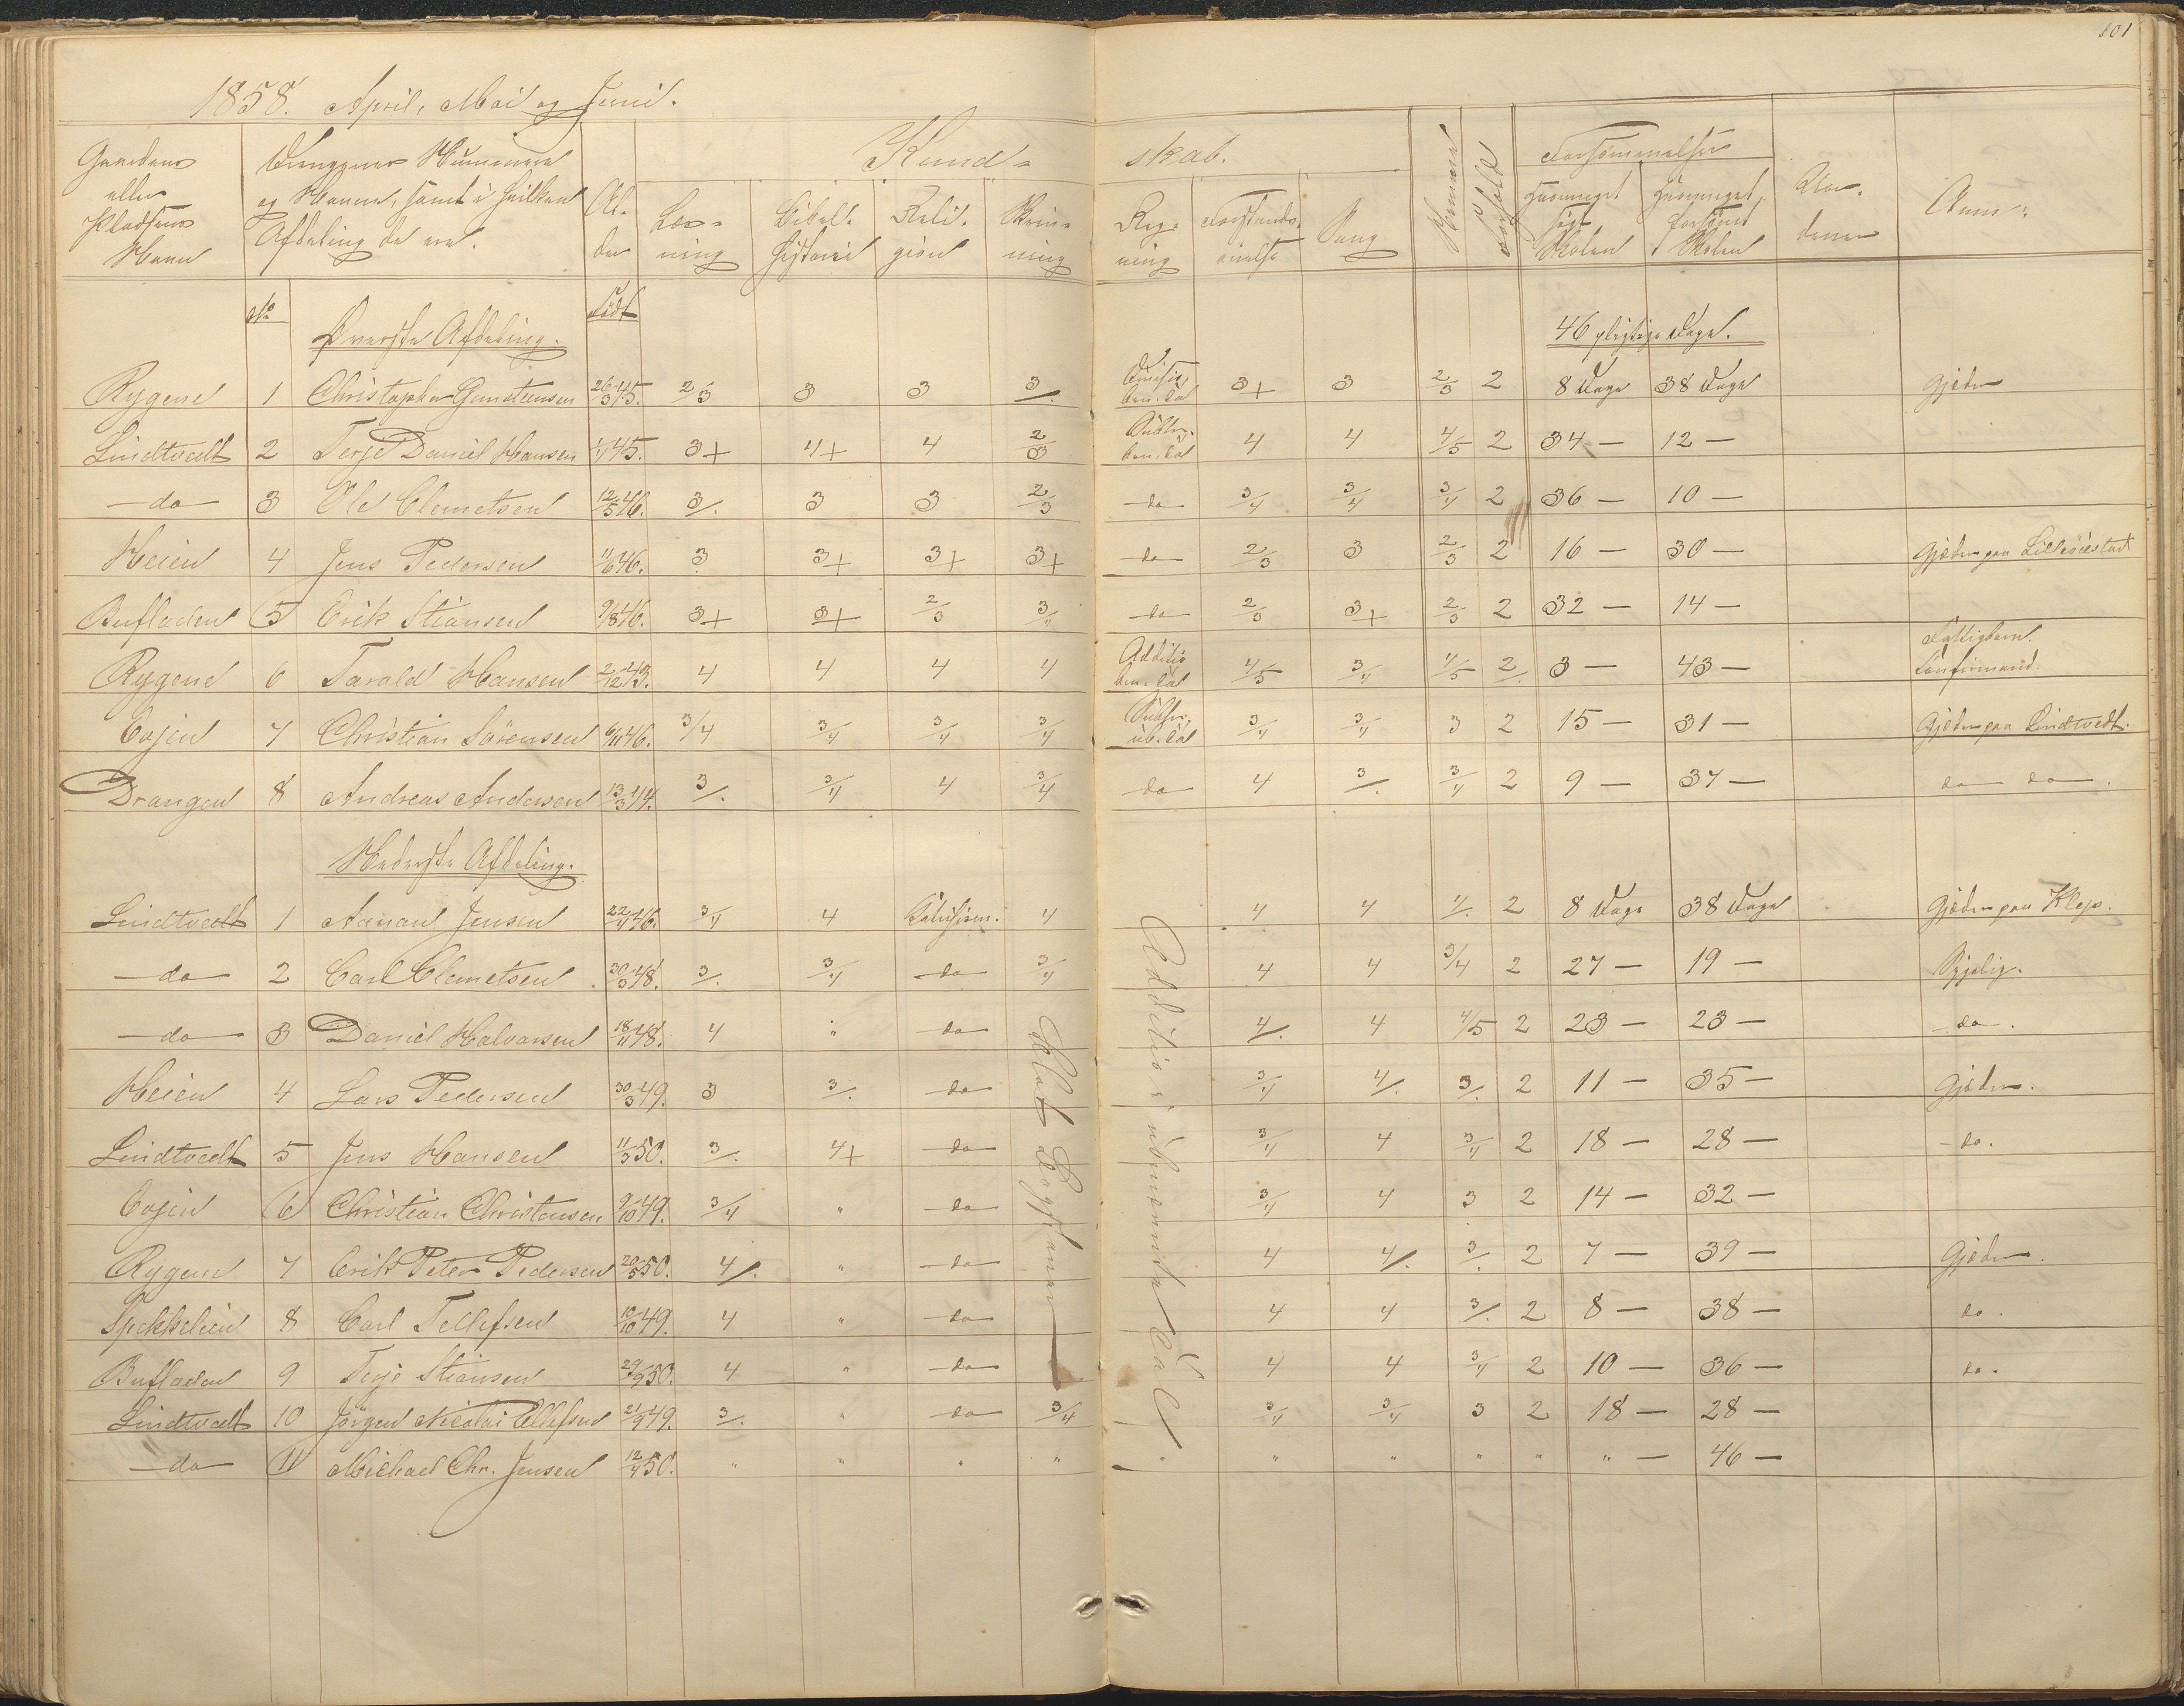 101
1858. April, Mai og Juni.
Gaardens eller Pladsens Navn | Drengenes Nummere og Navne, samt i hvilken Afdeling de ere. | Alder | Kundskab.
Læsning | Bibelhistorie | Religion | Skrivning | Regning | Forstandsøvelse | Sang | Nemme | Forhold | Forsømmelser | Hvormeget søgt Skolen | Hvormeget forsømt Skolen | Anm:
No | Øverste Afdeling. | Født | 46 pligtige Dage.
Rygene 1 Christopher Gunstensen 26/3 45. 2/3 3 3 3/. Division ben. Tal 3+ 3 2/3 2 8 Dage 38 Dage Gjæter
Lindtvedt 2 Terje Daniel Hansen 1/4 45. 3+ 4+ 4 2/3 Subtr. ben. Tal 4 4 4/5 2 34 — 12 —
— do — 3 Ole Clemetsen 12/5 46. 3/. 3 3 2/3 — do — 3/4 3/4 3/4 2 36 — 10 —
Heien 4 Jens Pedersen 11/6 46. 3 3+ 3+ 3+ — do — 2/3 3 2/3 2 16 — 30 — Gjæter paa Lilleøiestad
Bufladen 5 Erik Stiansen 9/8 46. 3+ 3+ 2/3 3/4 — do — 2/3 3+ 2/3 2 32 — 14 —
Rygene 6 Tarald Hansen 2/12 43. 4 4 4 4 Additio ben. Tal 4/5 3/4 4/5 2/. 3 — 43 — Fattigbarn. Confirmand.
Bojen 7 Christian Sørensen 6/11 46. 3/4 3/4 3/4 3/4 Subtr. ub. Tal 3/4 3/4 3 2 15 — 31 — Gjæter paa Lindtvedt.
Drangen 8 Andreas Andersen 13/3 44. 3/. 3/4 4 3/4 do 4 3/. 3/4 2 9 — 37 — do do.
Nederste Afdeling.
Lindtvedt 1 Aanaul Jensen 22/4 46. 3/4 4 Katechism. 4 4 4 4/. 2 8 Dage 38 Dage Gjæter paa Klep.
— do — 2 Carl Clemetsen 30/3 48. 3/. 3/4 — do — 3/4 4 4 3/4 2 27 — 19 — Sygelig.
— do — 3 Daniel Halvorsen 18/11 48. 4 " — do — 4/. 4 4/5 2 23 — 23 — — do —.
Heien 4 Lars Pedersen 30/3 49. 3 3/. — do — 3/4 4/. 3/. 2 11 — 35 — Gjæter.
Lindtvedt 5 Jens Hansen 11/3 50. 3/. 4+ — do — 3/4 4 3/4 2 18 — 28 — — do.
Bojen 6 Christian Christensen 9/10 49. 3/4 " — do — 3/4 4 3 2 14 — 32 —
Rygene 7 Erik Peter Pedersen 20/5 50. 4/. " — do — 4 4/. 3/. 2 7 — 39 — Gjæter.
Spekkelien 8 Carl Tellefsen 10/10 49. 4 " — do — 4 4 3/. 2 8 — 38 — do.
Bufladen 9 Terje Stiansen 29/9 50. 4 " — do — 4 4 3/4 2 10 — 36 — do.
Lindtvedt 10 Jørgen Nicolai Ellefsen 21/9 49. 3/. " — do — 3/4 3/4 3/4 3 2 18 — 28 —
— do — 11 Michael Chr. Jensen 12/4 50. " " " " " " " " " — 46 —
Skrev Bogstaver
Addition i ubenævnte Tal.